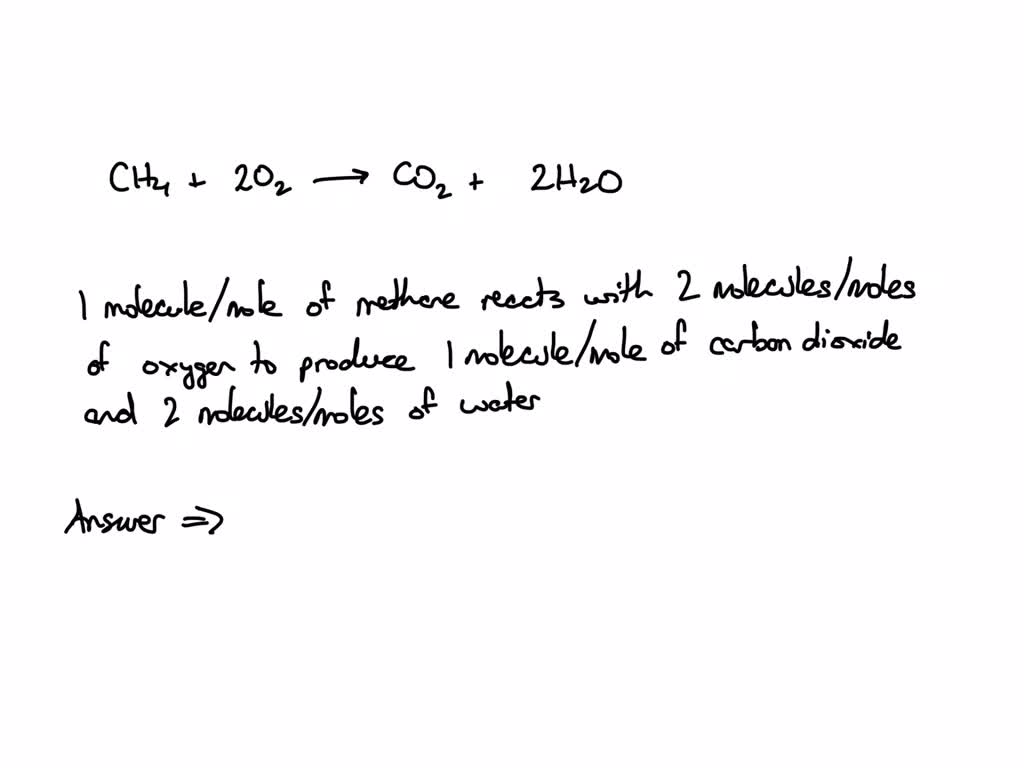 CH₄ + 2O₂ → CO₂ + 2H₂O
1 molecule/mole of methane reacts with 2 molecules/moles
of oxygen to produce 1 molecule/mole of carbon dioxide
and 2 molecules/moles of water
Answer ⇒